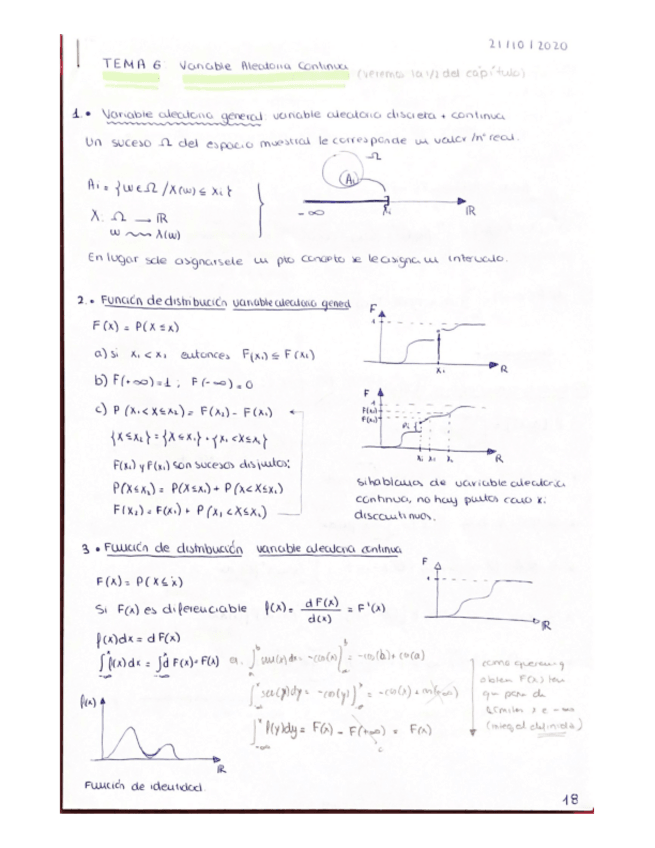 21/10/2020
TEMA 6: Variable Aleatoria Continua (veremos la 1/2 del capítulo)
1.• Variable aleatoria general: variable aleatoria discreta + continua
Un suceso Ω del espacio muestral le corresponde un valor/nº real.
Ω
Ai
Ai = {w∈Ω / X(w) ≤ xi}
-∞ xi ℝ
X: Ω → ℝ
w ⇝ X(w)
En lugar de asignarsele un pto concreto se le asigna un intervalo.
2.• Función de distribución variable aleatoria general
F(x) = P(X ≤ x)
a) si x₁ < x₂ entonces F(x₁) ≤ F(x₂)
b) F(+∞) = 1 ; F(-∞) = 0
c) P(x₁ < X ≤ x₂) = F(x₂) - F(x₁)
{X ≤ x₂} = {X ≤ x₁} + {x₁ < X ≤ x₂}
F(x₁) y F(x₂) son sucesos disjuntos;
P(X ≤ x₂) = P(X ≤ x₁) + P(x₁ < X ≤ x₂)
F(x₂) = F(x₁) + P(x₁ < X ≤ x₂)
F
1
xi
R
F
1
F(x₂)
F(x₁)
Pi
xi x₁ x₂
R
Si hablamos de variable aleatoria
continua, no hay puntos como xi
discontinuos.
3 • Función de distribución variable aleatoria continua
F(x) = P(X ≤ x)
Si F(x) es diferenciable f(x) = dF(x)/d(x) = F'(x)
F
1
ℝ
f(x)dx = dF(x)
∫f(x)dx = ∫d F(x) = F(x)
∫ₐᵇ sen(x)dx = -cos(x)]ₐᵇ = -cos(b) + cos(a)
∫ˣ sen(y)dy = -cos(y)]ˣ = -cos(x) + cos(-∞)
∫ˣ f(y)dy = F(x) - F(+∞) = F(x)
como queremos
obtener F(x)
que pasar de
s e -∞
(integral definida)
f(x)
ℝ
Función de identidad.
18